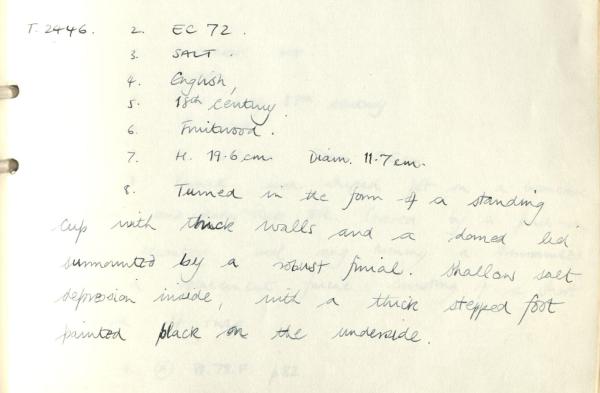 T. 2446. 2. EC 72.
3. SALT.
4. English,
5. 18th century.
6. Fruitwood.
7. H. 19.6 cm. Diam. 11.7 cm.
8. Turned in the form of a standing
cup with thick walls and a domed lid
surmounted by a robust finial. Shallow salt
depression inside, with a thick stepped foot
painted black on the underside.